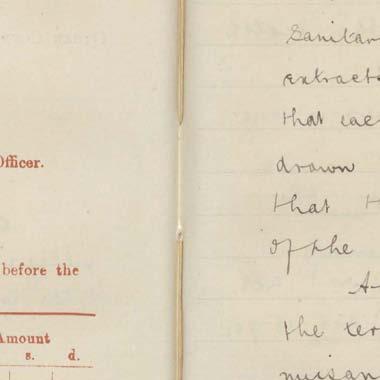 Officer.
before the
Amount
s. d.
Sanitar
extracts
that eac
drawn
that t
of the
A
the ter
nuisan